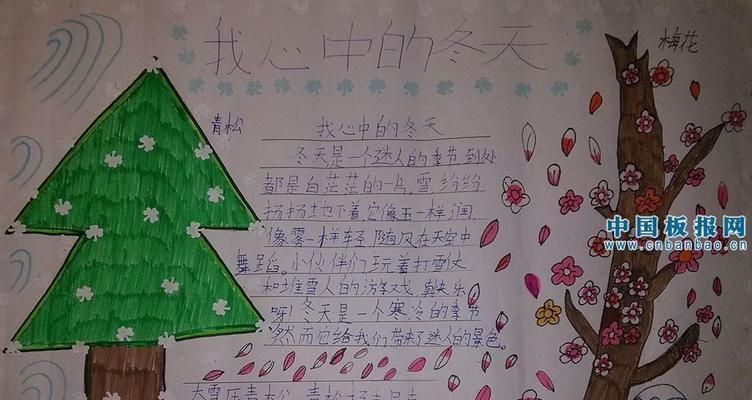 我心中的冬天
梅花
青松
我心中的冬天
冬天是一个迷人的季节到处
都是白茫茫的一片,雪纷纷
扬扬地下着它像玉一样润,
像雾一样轻,随风在天空中
舞蹈。小伙伴们玩着打雪仗
和堆雪人的游戏,真快乐
呀!冬天是一个寒冷的季节
然而它给我们带来了迷人的景色。
大雪压青松,青松
中国板报网
www.cnbanbao.cn